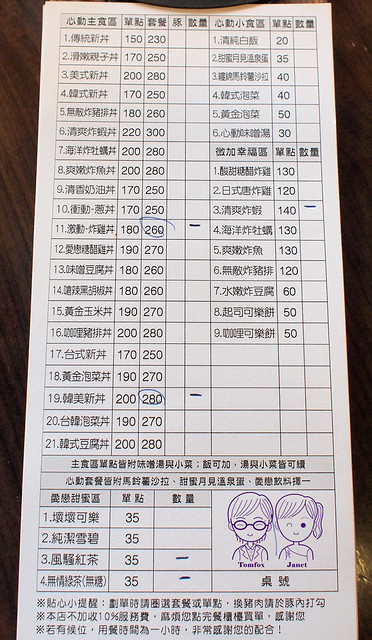 心動主食區 單點 套餐 豚 數量
1.傳統新丼 150 230
2.滑嫩親子丼 170 250
3.美式新丼 200 280
4.韓式新丼 170 250
5.無敵炸豬排丼 180 260
6.清爽炸蝦丼 220 300
7.海洋炸牡蠣丼 200 280
8.爽嫩炸魚丼 200 280
9.清香奶油丼 170 250
10.衝動-蔥丼 170 250
11.激動-炸雞丼 180 260
12.愛戀糖醋雞丼 190 270
13.味噌豆腐丼 180 260
14.嗆辣黑胡椒丼 180 260
15.黃金玉米丼 190 270
16.咖哩豬排丼 200 280
17.台式新丼 170 250
18.黃金泡菜丼 190 270
19.韓美新丼 200 280
20.台韓泡菜丼 190 270
21.韓式豆腐丼 200 280
心動小食區 單點 數量
1.清純白飯 20
2.甜蜜月見溫泉蛋 35
3.纏綿馬鈴薯沙拉 40
4.韓式泡菜 40
5.黃金泡菜 50
6.心動味噌湯 30
微加幸福區 單點 數量
1.酸甜糖醋炸雞 130
2.日式唐炸雞 120
3.清爽炸蝦 140
4.海洋炸牡蠣 130
5.爽嫩炸魚 130
6.無敵炸豬排 120
7.水嫩炸豆腐 60
8.起司可樂餅 50
9.咖哩可樂餅 50
主食區單點皆附味噌湯與小菜；飯可加，湯與小菜皆可續
心動套餐皆附馬鈴薯沙拉、甜蜜月見溫泉蛋、愛戀飲料擇一
愛戀甜蜜區 單點 數量
1.壞壞可樂 35
2.純潔雪碧 35
3.風騷紅茶 35
4.無情綠茶(無糖) 35
Tomfox Janet
桌號
※貼心小提醒：劃單時請圈選套餐或單點，換豬肉請於豚內打勾
※本店不加收10%服務費，麻煩您點完餐櫃檯買單，感謝您
※若有候位，用餐時間為一小時，非常感謝您的合作！